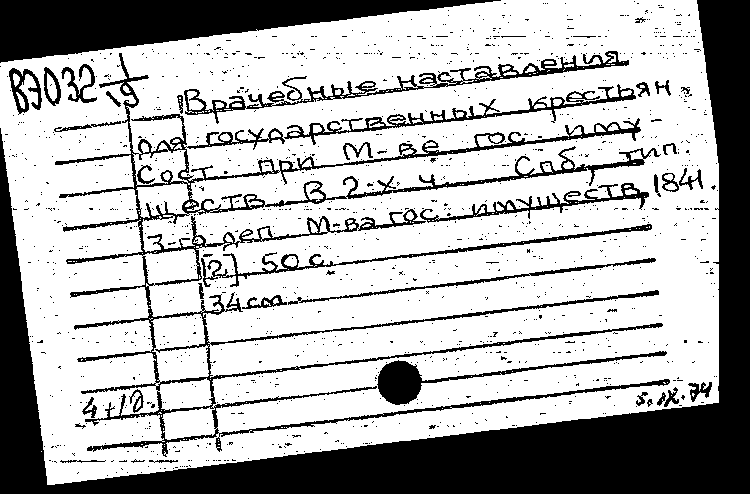 ВЭ032 1/19
Врачебные наставления
для государственных крестьян.
Сост. при М-ве гос. иму-
ществ. В 2-х ч. Спб., тип.
3-го деп. М-ва гос. имуществ, 1841.
[2], 50 с.
34 см.
4+10.